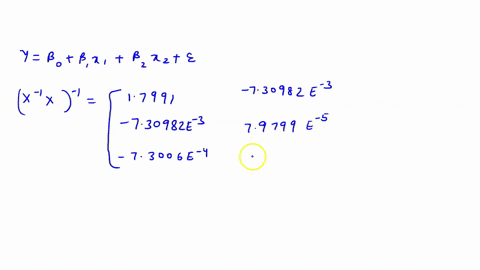 Y = β₀ + β₁x₁ + β₂x₂ + ε
(X⁻¹X)⁻¹ = [ 1.7991 -7.30982E⁻³
-7.30982E⁻³ 7.9799 E⁻⁵
-7.3006E⁻⁴ .